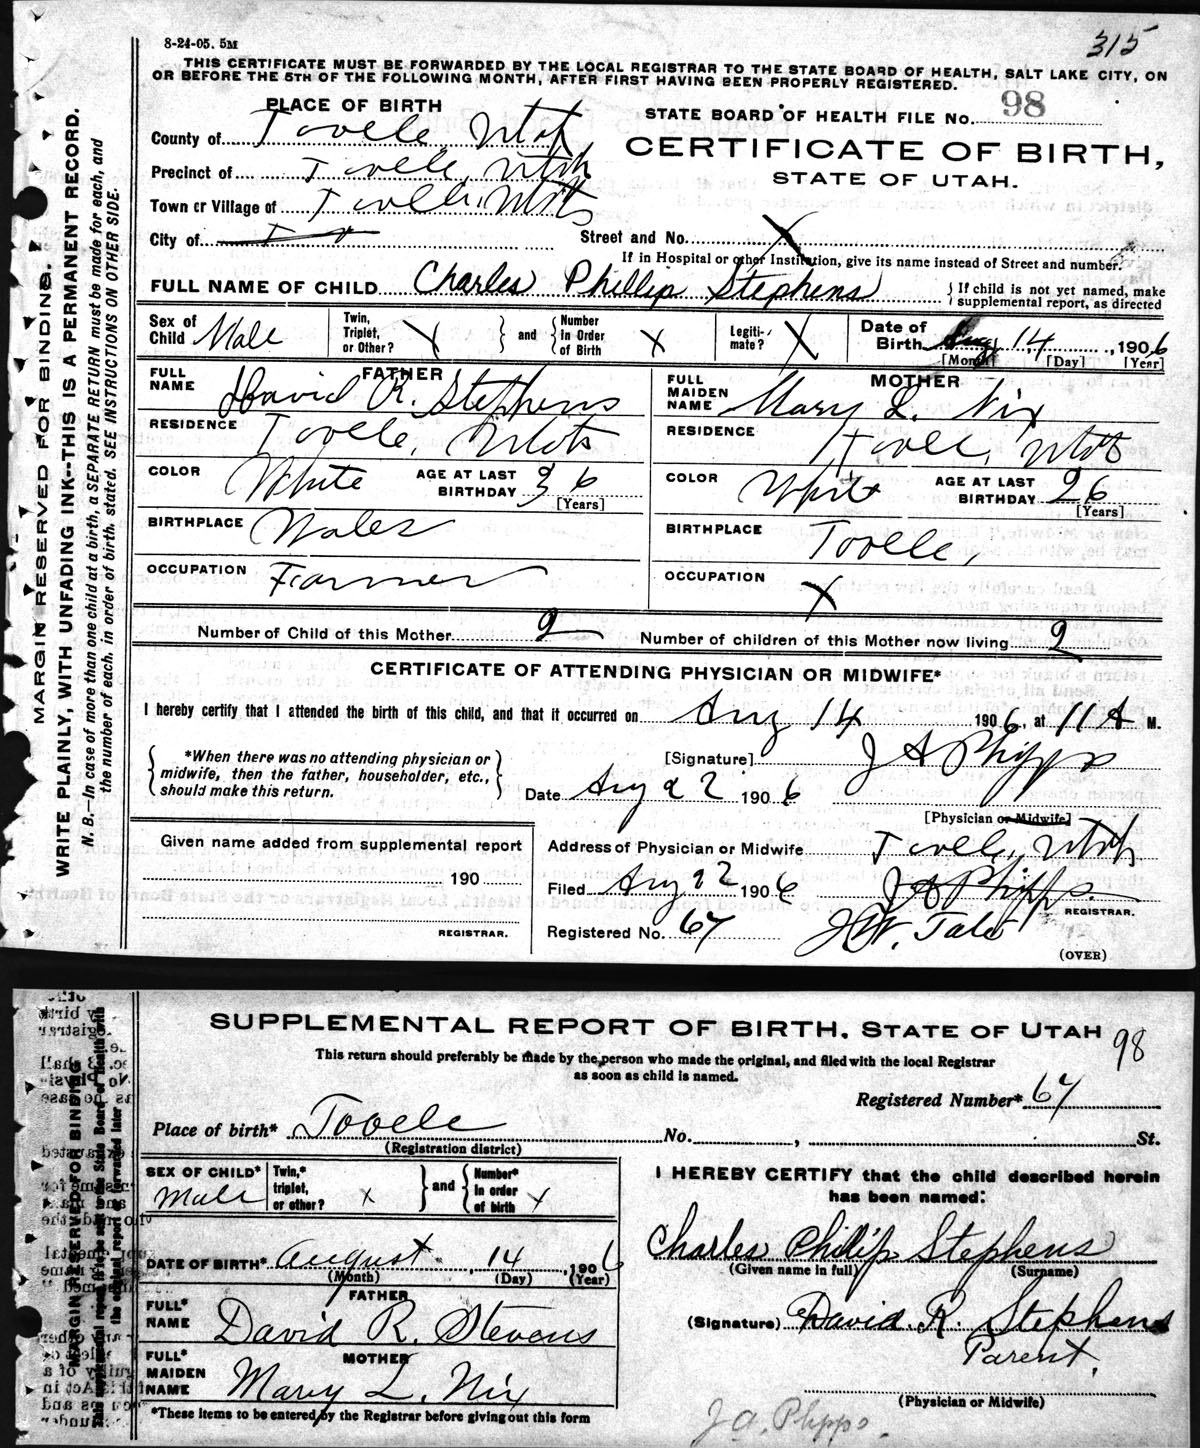 315
8-24-05. 5M
THIS CERTIFICATE MUST BE FORWARDED BY THE LOCAL REGISTRAR TO THE STATE BOARD OF HEALTH, SALT LAKE CITY, ON
OR BEFORE THE 5TH OF THE FOLLOWING MONTH, AFTER FIRST HAVING BEEN PROPERLY REGISTERED.
MARGIN RESERVED FOR BINDING.
WRITE PLAINLY, WITH UNFADING INK--THIS IS A PERMANENT RECORD.
N. B.—In case of more than one child at a birth, a SEPARATE RETURN must be made for each, and
the number of each, in order of birth, stated. SEE INSTRUCTIONS ON OTHER SIDE.
PLACE OF BIRTH
STATE BOARD OF HEALTH FILE No. 98
County of Tooele, Utah
CERTIFICATE OF BIRTH,
STATE OF UTAH.
Precinct of Tooele, Utah
Town or Village of Tooele, Utah
City of
Street and No. X
If in Hospital or other Institution, give its name instead of Street and number.
FULL NAME OF CHILD Charles Phillip Stephens } If child is not yet named, make
supplemental report, as directed
Sex of Child Male
Twin, Triplet, or Other? X } and { Number in Order of Birth X
Legiti-mate? X
Date of Birth Aug 14, 1906
[Month] [Day] [Year]
FATHER
FULL NAME David R. Stephens
MOTHER
FULL MAIDEN NAME Mary L. Nix
RESIDENCE Tooele, Utah
RESIDENCE Tooele, Utah
COLOR White AGE AT LAST BIRTHDAY 36 [Years]
COLOR White AGE AT LAST BIRTHDAY 26 [Years]
BIRTHPLACE Wales
BIRTHPLACE Tooele,
OCCUPATION Farmer
OCCUPATION X
Number of Child of this Mother 2 Number of children of this Mother now living 2
CERTIFICATE OF ATTENDING PHYSICIAN OR MIDWIFE*
I hereby certify that I attended the birth of this child, and that it occurred on Aug 14 1906, at 11 A M.
{ *When there was no attending physician or
midwife, then the father, householder, etc.,
should make this return. }
[Signature] J A Phipps
Date Aug 22 1906
[Physician or Midwife]
Given name added from supplemental report
190
REGISTRAR.
Address of Physician or Midwife Tooele, Utah
Filed Aug 22 1906 J A Phipps
REGISTRAR.
Registered No. 67 J.W. Tate
(OVER)
SUPPLEMENTAL REPORT OF BIRTH. STATE OF UTAH 98
This return should preferably be made by the person who made the original, and filed with the local Registrar
as soon as child is named.
MARGIN RESERVED FOR BINDING
Registered Number* 67
Place of birth* Tooele No. , St.
(Registration district)
SEX OF CHILD* Male
Twin,* triplet, or other? X } and { Number* in order of birth X
I HEREBY CERTIFY that the child described herein
has been named:
DATE OF BIRTH* August 14, 1906
(Month) (Day) (Year)
Charles Philip Stephens
(Given name in full) (Surname)
FATHER
FULL* NAME David R. Stevens
(Signature) David. R. Stephens
Parent.
MOTHER
FULL* MAIDEN NAME Mary L. Nix
(Physician or Midwife)
*These items to be entered by the Registrar before giving out this form
J.A. Phipps.